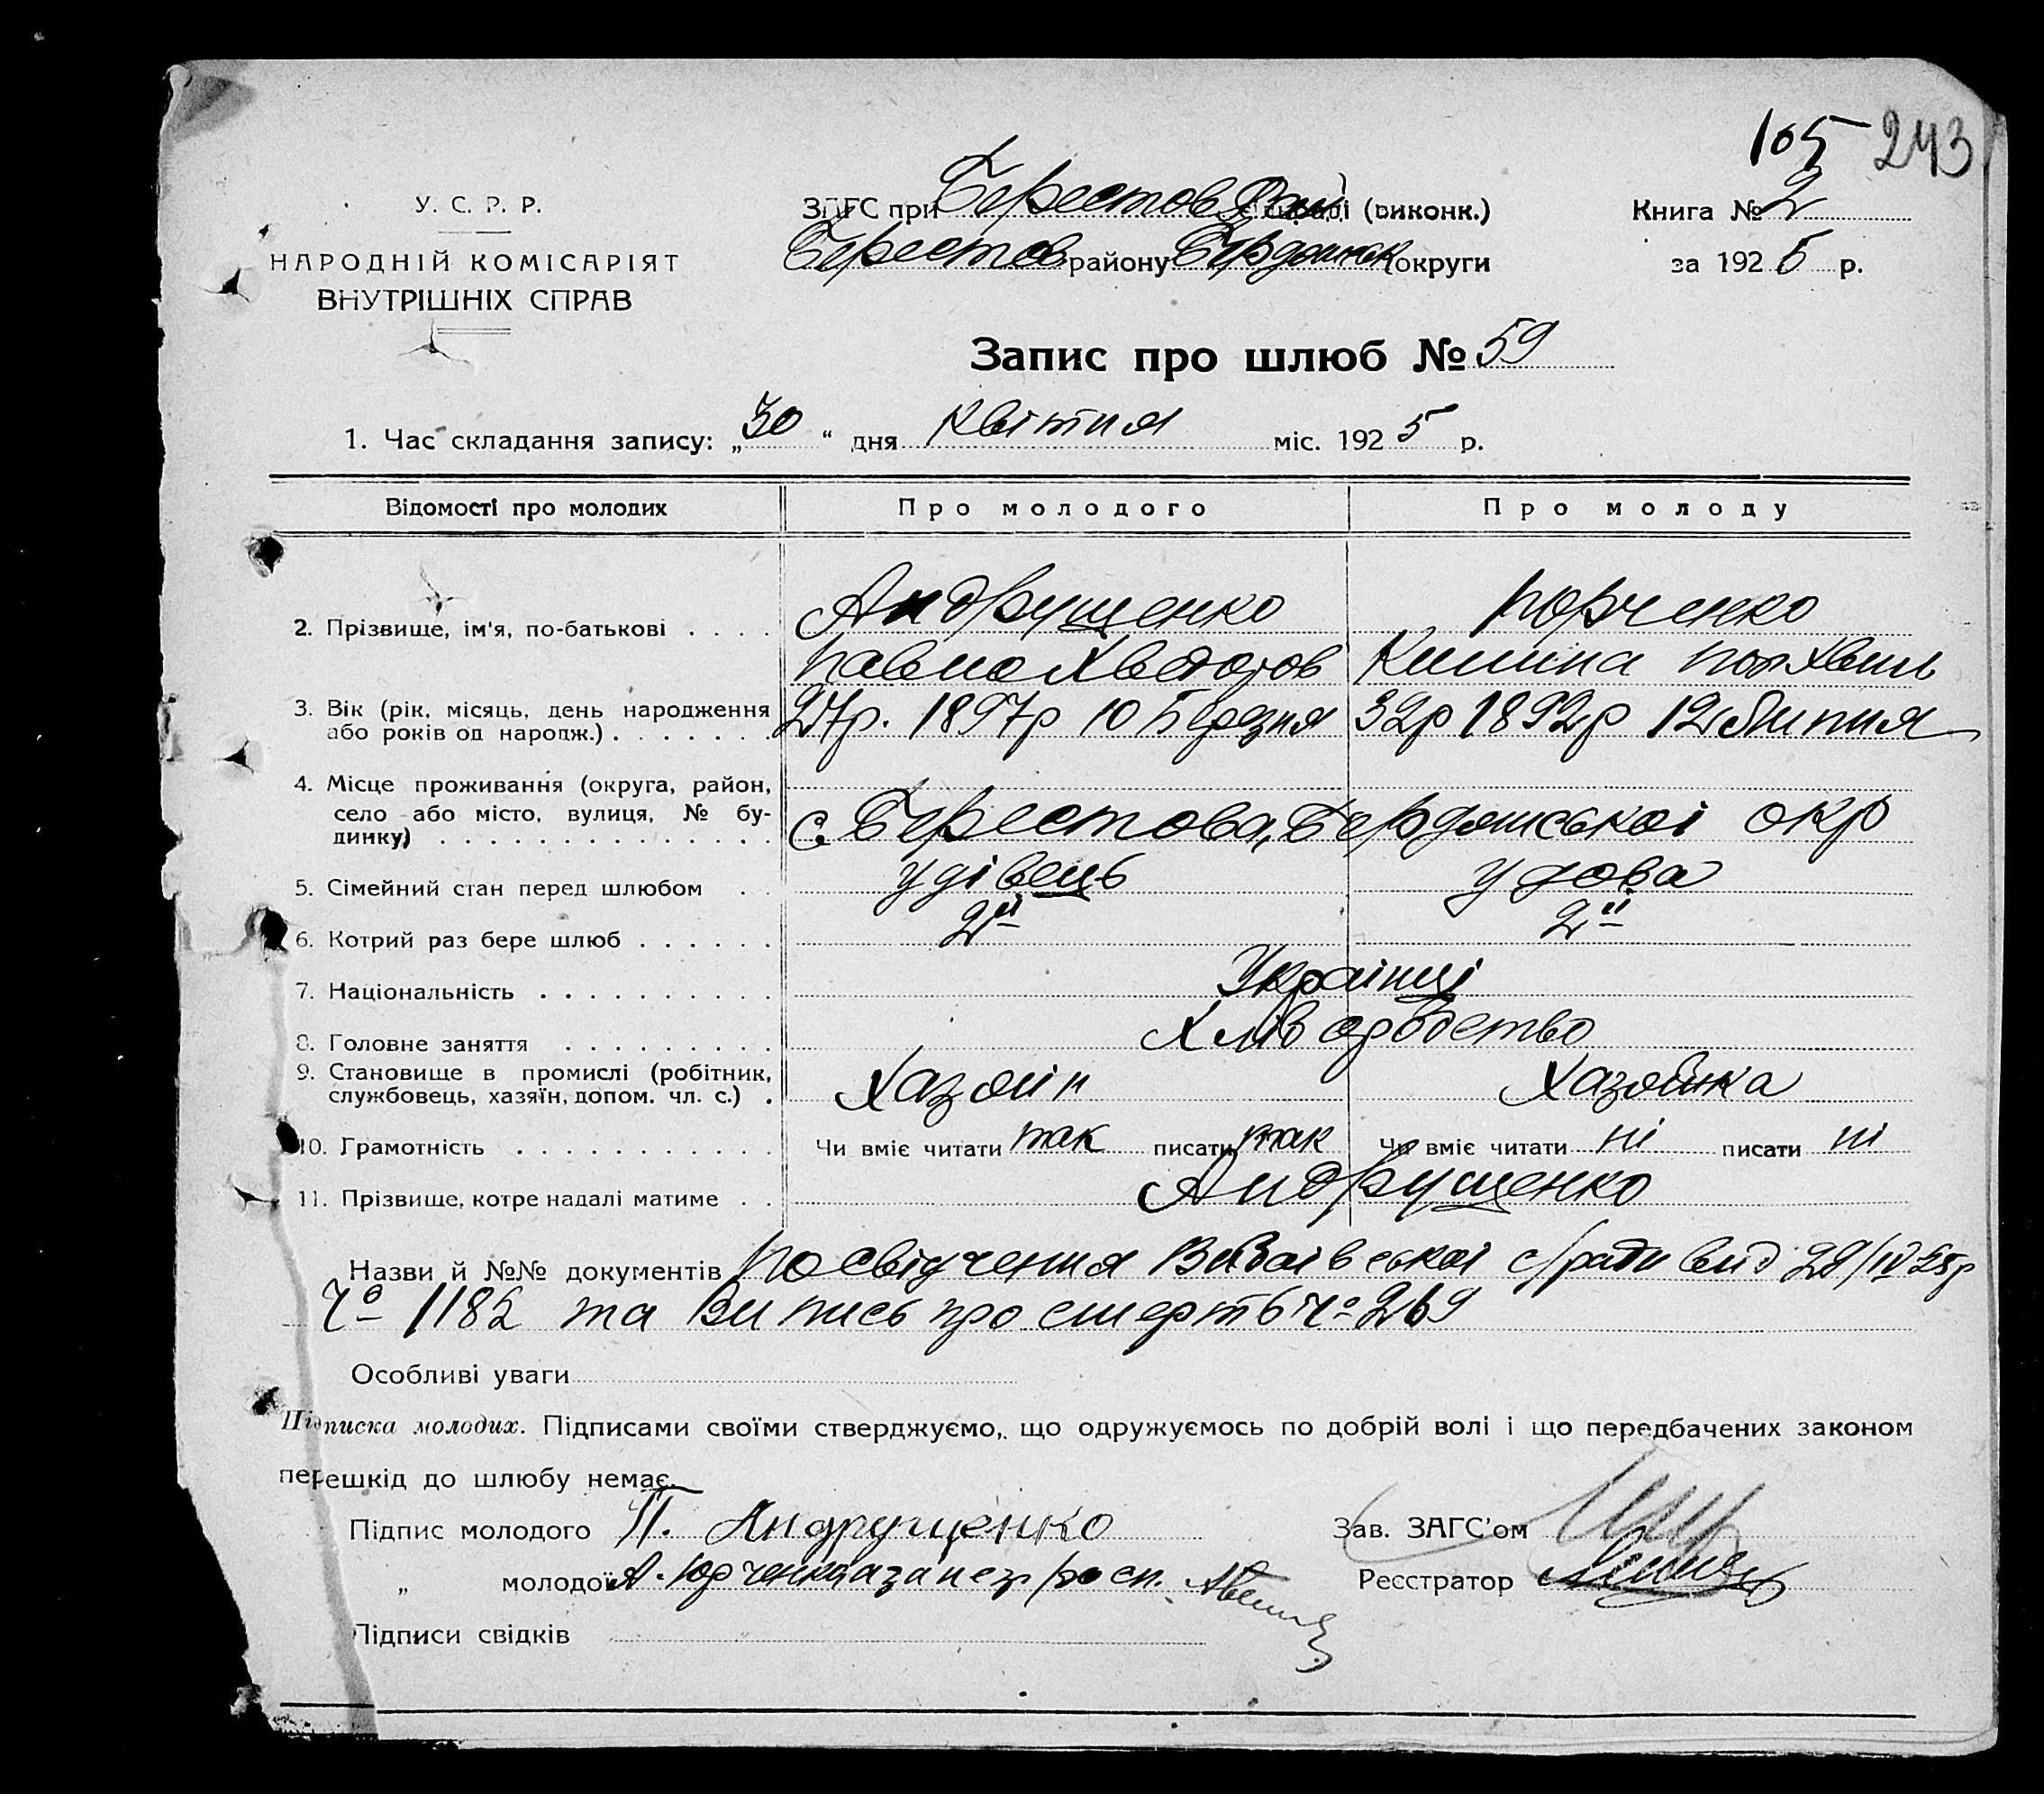 105 243
У. С. Р. Р.
НАРОДНІЙ КОМІСАРІЯТ
ВНУТРІШНІХ СПРАВ
ЗАГС при Берестов Рай (виконк.)
Берестов району Бердянськ округи
Книга № 2
за 1925 р.
Запис про шлюб № 59
1. Час складання запису: „30“ дня Квітня міс. 1925 р.
Відомості про молодих Про молодого Про молоду
2. Прізвище, ім'я, по-батькові . . . . Андрущенко Юрченко
Павло Хведоров Килина
3. Вік (рік, місяць, день народження або років од народж.) . . . . . . . 27р. 1897р 10 Березня 32р 1892р 12 Липня
4. Місце проживання (округа, район, село або місто, вулиця, № будинку) . . . . . . . . . . . . . . с. Берестова, Бердянської окр
5. Сімейний стан перед шлюбом . . удівець удова
6. Котрий раз бере шлюб . . . . . . 2й 2й
7. Національність . . . . . . . . . . Українці
8. Головне заняття . . . . . . . . . Хліборобство
9. Становище в промислі (робітник, службовець, хазяїн, допом. чл. с.) . Хазяїн Хазяйка
10. Грамотність . . . . . . . . . . . Чи вміє читати так писати так Чи вміє читати ні писати ні
11. Прізвище, котре надалі матиме . . Андрущенко
Назви й №№ документів Посвідчення с/ради вид 29/IV 25р
Ч° 1182 та Випись про смерть Ч° 269
Особливі уваги
Підписка молодих. Підписами своїми стверджуємо, що одружуємось по добрій волі і що передбачених законом
перешкід до шлюбу немає.
Підпис молодого П. Андрущенко Зав. ЗАГС'ом
„ молодої А. Юрченко а за негр росп. Реєстратор
Підписи свідків